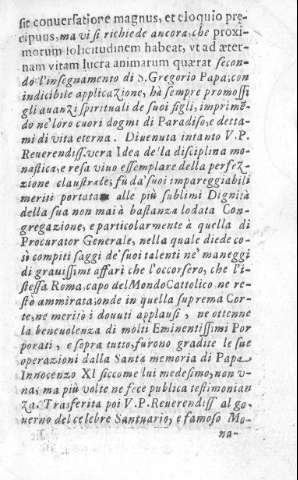 sit conuersatione magnus, et eloquio prę
cipuus, ma vi si richiede ancora, che proxi-
morum solicitudinem habeat, vt ad æter-
nam vitam lucra animarum quærat secon-
do l'insegnamento di S. Gregorio Papa, con
indicibile applicazione, hà sempre promossi
gli auanzi spirituali de suoi figli, imprimē-
do ne'loro cuori dogmi di Paradiso, e detta-
mi di vita eterna. Diuenuta intanto V.P.
Reuerendiss. vera Idea de'la disciplina mo-
nastica, e resa viuo essemplare della perfez-
zione claustrale, fù da'suoi impareggiabili
meriti portata alle più sublimi Dignità
della sua non mai à bastanza lodata Con-
gregazione, e particolarmente à quella di
Procurator Generale, nella quale diede co-
sì compiti saggi de'suoi talenti ne' maneggi
di grauissimi affari che l'occorsero, che l'i-
stessa Roma capo del Mondo Cattolico ne re-
stò ammirata, onde in quella suprema Cor-
te, ne meritò i douuti applausi, ne ottenne
la beneuolenza di molti Eminentissimi Por
porati, e sopra tutto, furono gradite le sue
operazioni dalla Santa memoria di Papa
Innocenzo XI siccome lui medesimo, non v-
na; ma più volte ne fece publica testimonian
za. Trasferita poi V.P. Reuerendiss al go-
uerno del celebre Santuario, e famoso Mo-
na-